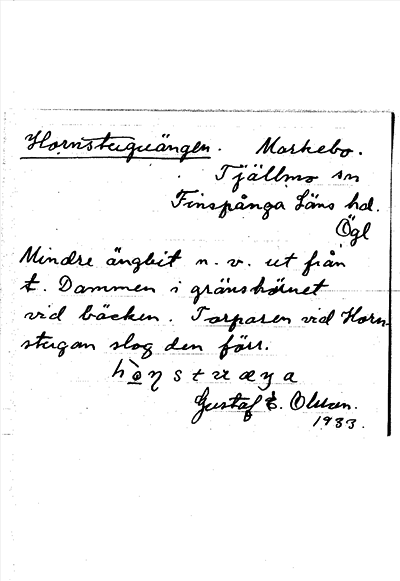 Hornstuguängen. Markebo.
Tjällmo sn
Finspånga Läns hd.
Ögl
Mindre ängbit n. v. ut från
t. Dammen i gränshörnet
vid bäcken. Torparen vid Horn-
stugan slog den förr.
Gustaf E. Olsson.
1933.